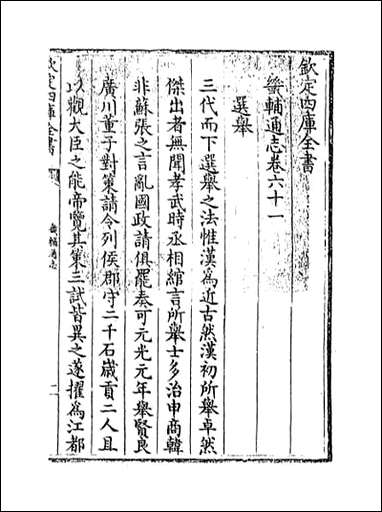 欽定四庫全書
畿輔通志卷六十一
選舉
三代而下選舉之法惟漢為近古然漢初所舉卓然
傑出者無聞孝武時丞相綰言所舉士多治申商韓
非蘇張之言亂國政請俱罷奏可元光元年舉賢良
廣川董子對策請令列侯郡守二千石歲貢二人且
以觀大臣之能帝覽其策三試皆異之遂擢為江都
欽定四庫全書
畿輔通志